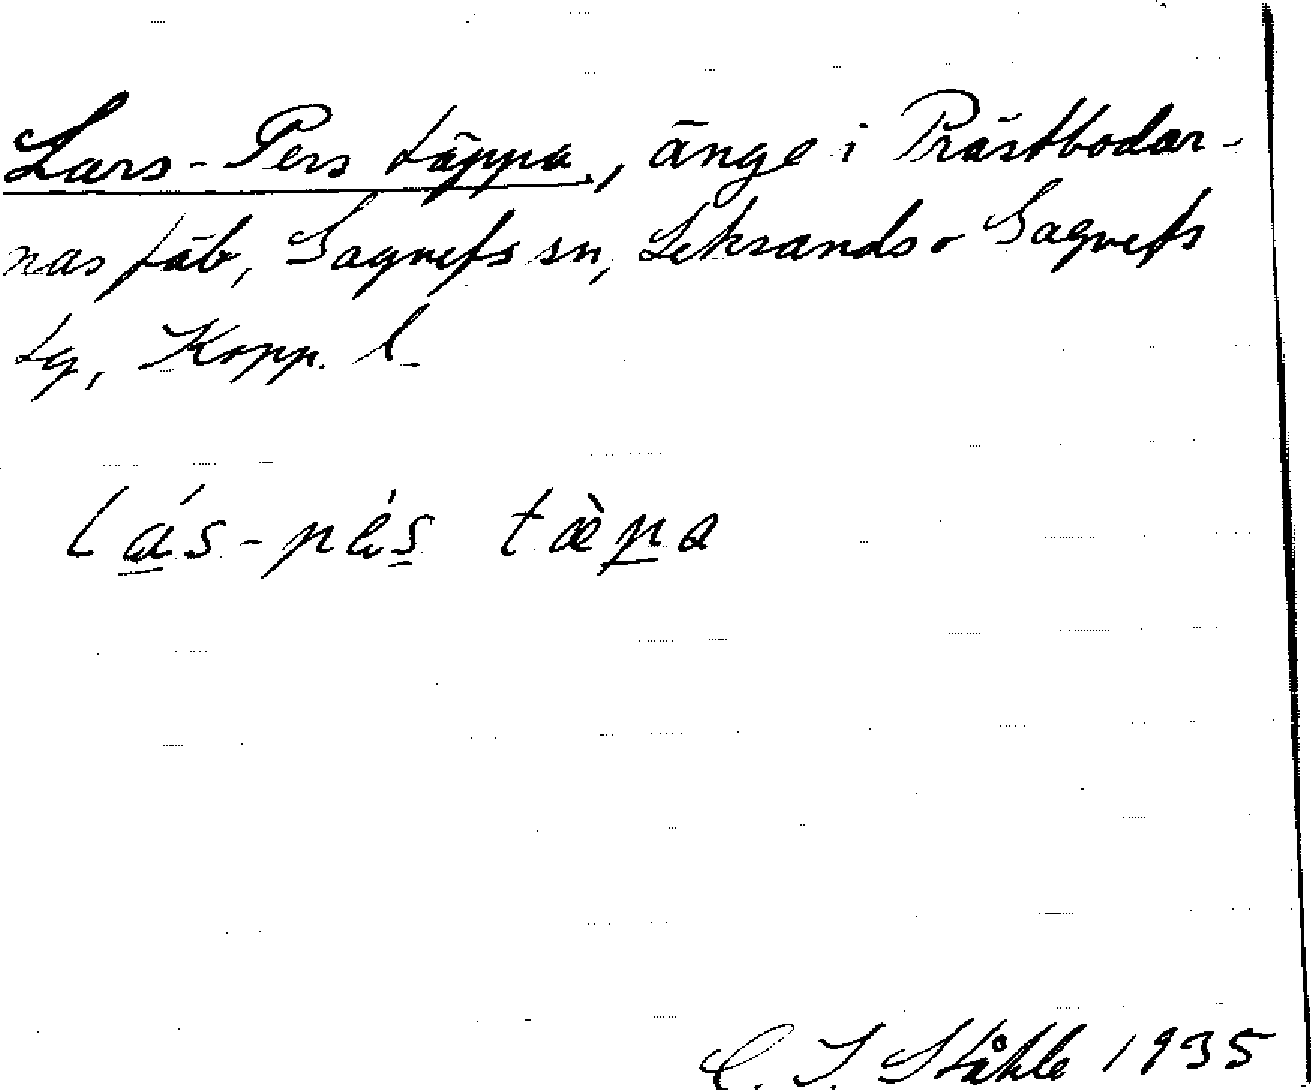 Lars-Pers täppa, änge i Prästbodar-
nas fäb, Gagnefs sn, Leksands o Gagnefs
tg, Kopp. l.
lás-pés tæ̀pa
C. I. Ståhle 1935